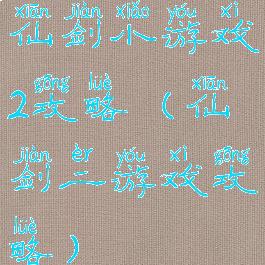 xiān jiàn xiǎo yóu xì
仙剑小游戏
gōng lüè xiān
2攻略（仙
jiàn èr yóu xì gōng
剑二游戏攻
lüè
略）